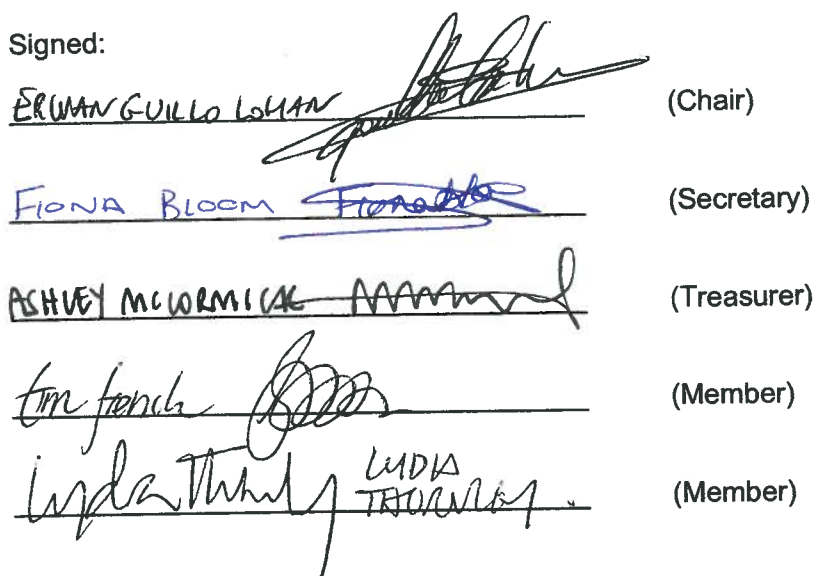 Signed:
ERWAN GUILLO LOHAN (Chair)
FIONA BLOOM Fiona (Secretary)
ASHLEY MCCORMICAC (Treasurer)
tim french (Member)
Lydia Thornley LYDIA THORNLEY. (Member)